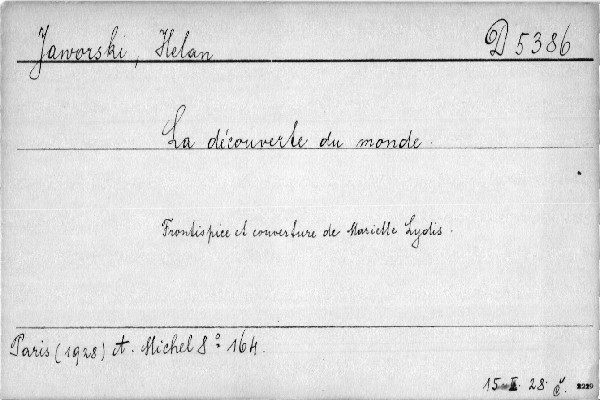 Jaworski, Helan D 5386
La découverte du monde.
Frontispice et couverture de Mariette Lydis.
Paris (1928) A. Michel 8° 164.
15. II. 28. Č. 2229